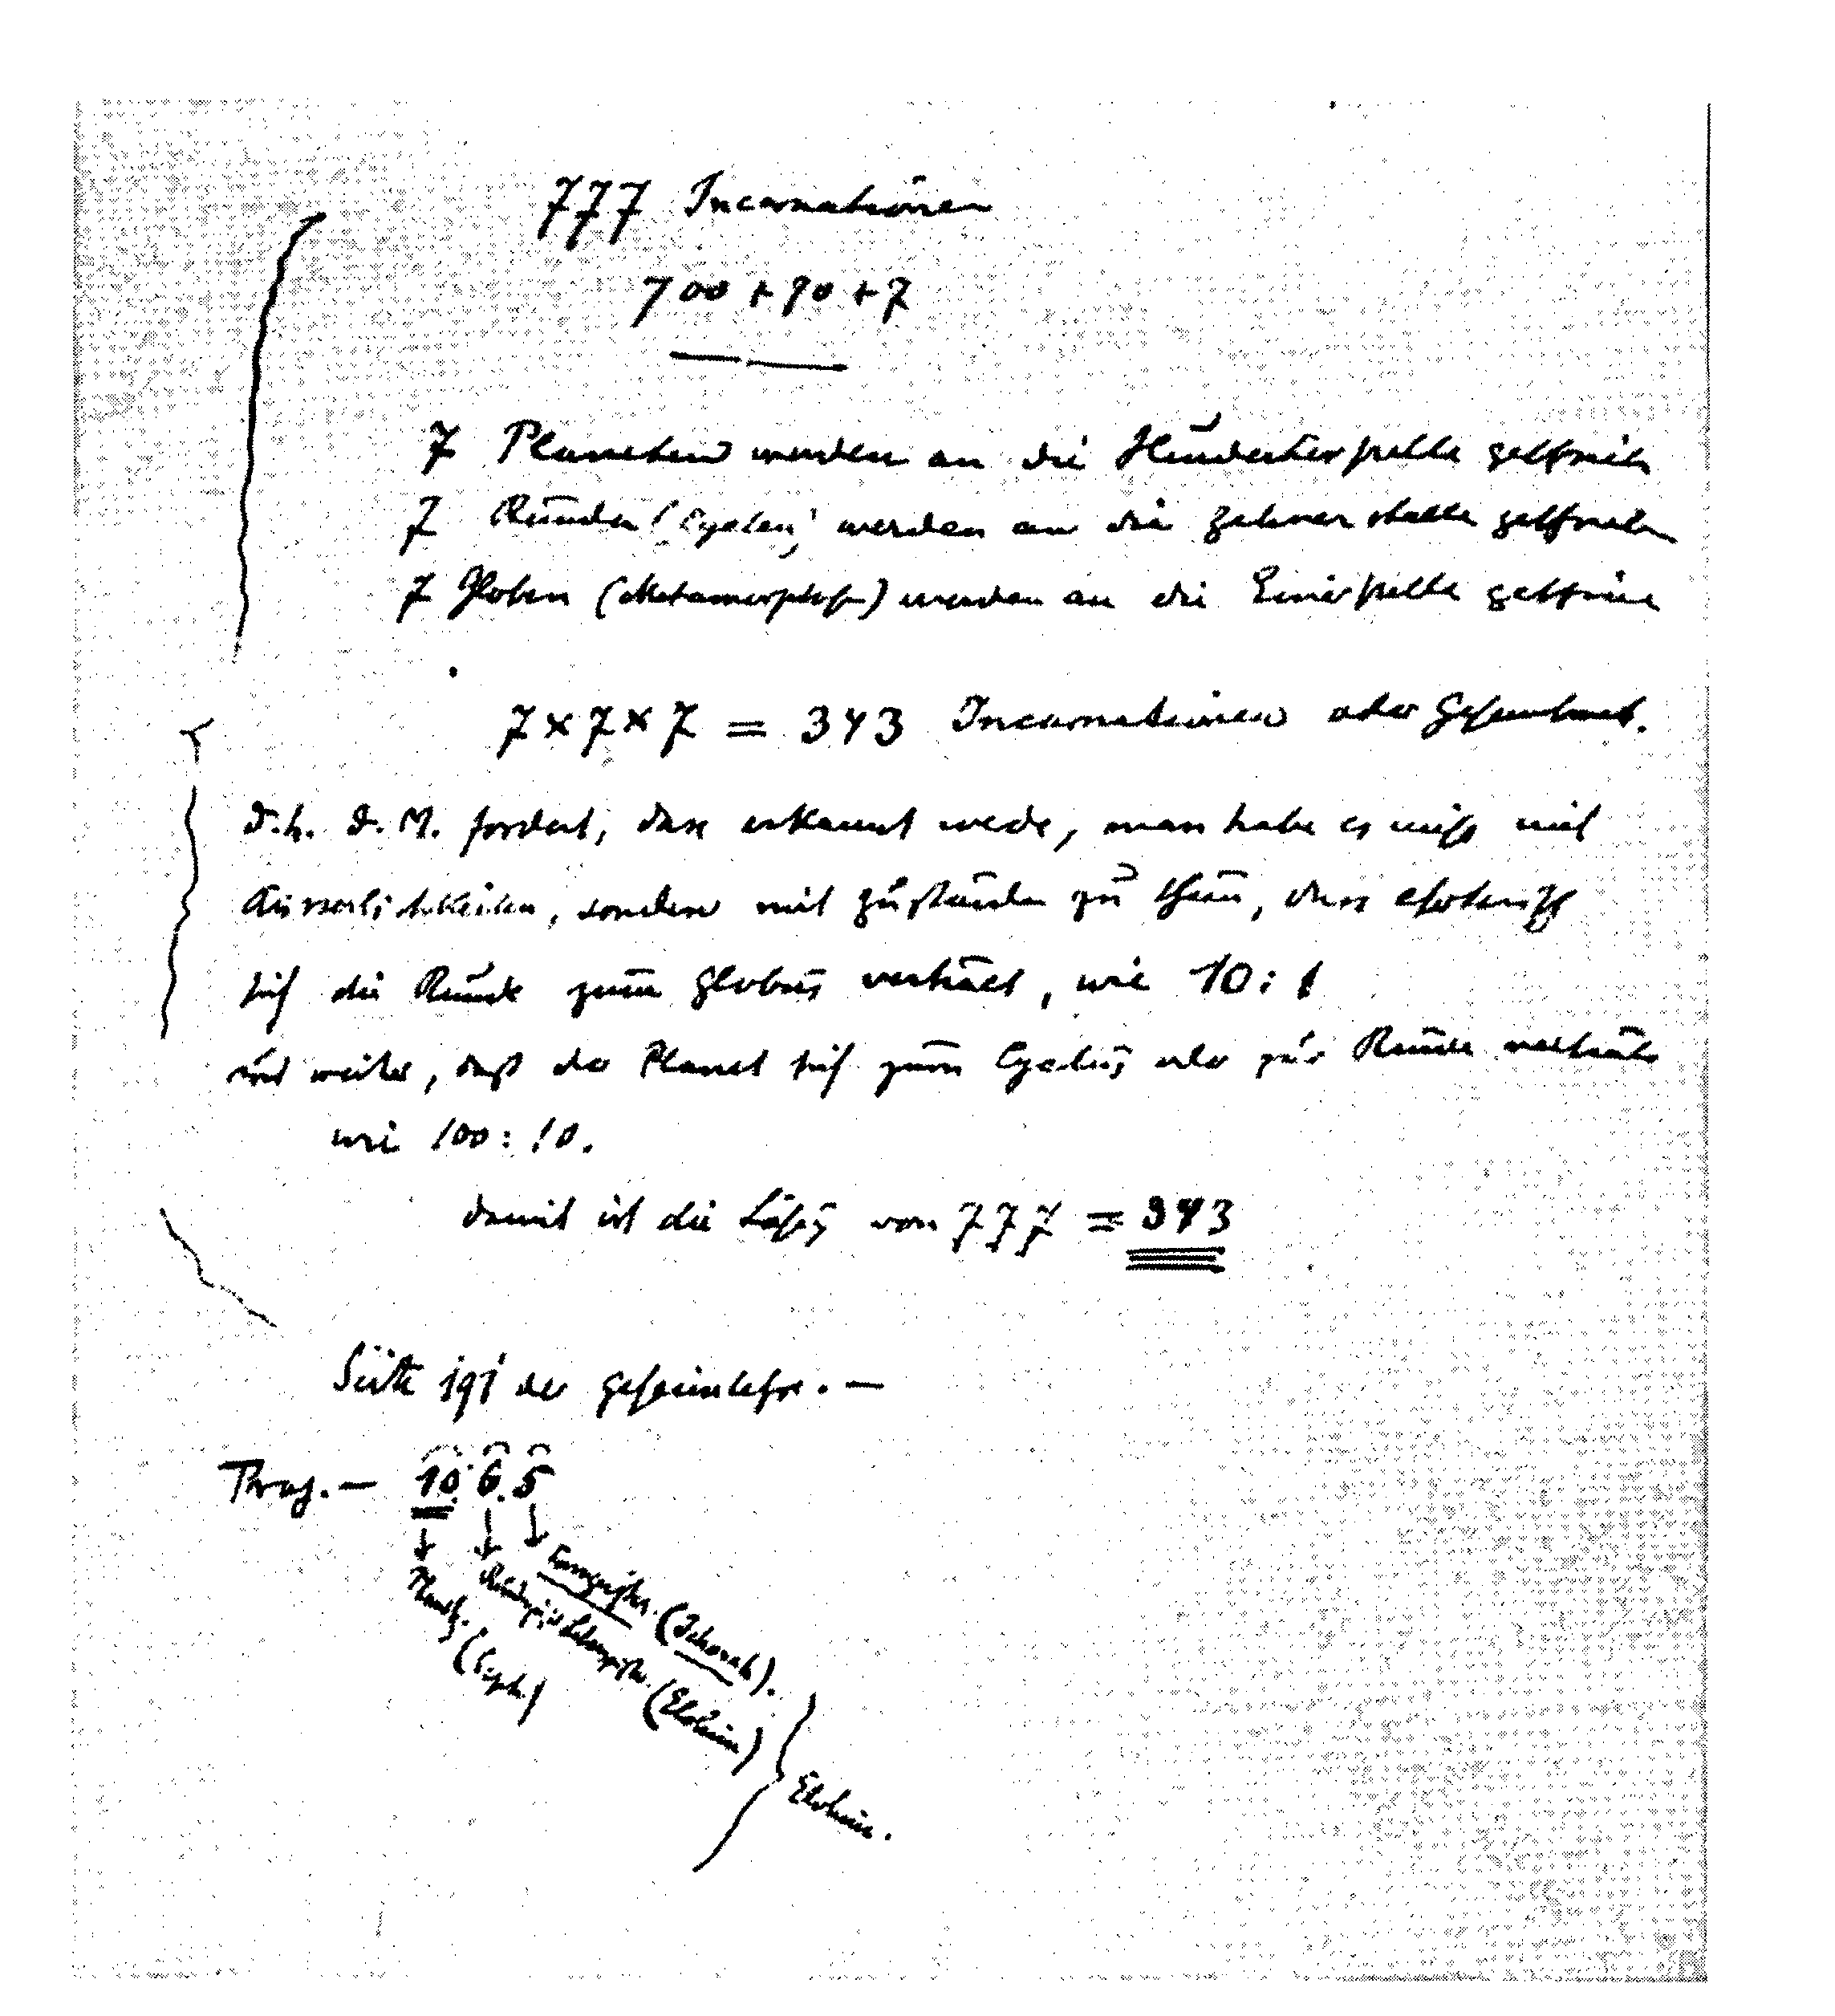 777 Incarnationen
700 + 70 + 7
7 Planeten werden an die Hunderterstelle geschrieb
7 Runden (Cyclen) werden an die Zehnerstelle geschrieb
7 Globen (Metamorphos) werden an die Einerstelle geschrieb
7 x 7 x 7 = 343 Incarnationen oder
d.h. d. M. fordert, dass erkannt werde, man habe es nicht mit
Äusserlichkeiten, sondern mit Zuständen zu thun, dass esoterisch
sich die Runde zum Globus verhält, wie 10:1
und weiter, daß der Planet sich zum Cyclus oder zur Runde verhält
wie 100:10.
damit ist die Lösg von 777 = 343
Seite 191 der Geheimlehre. —
10. 6. 5
(Jehovah).
(Elohim)
Elohim.